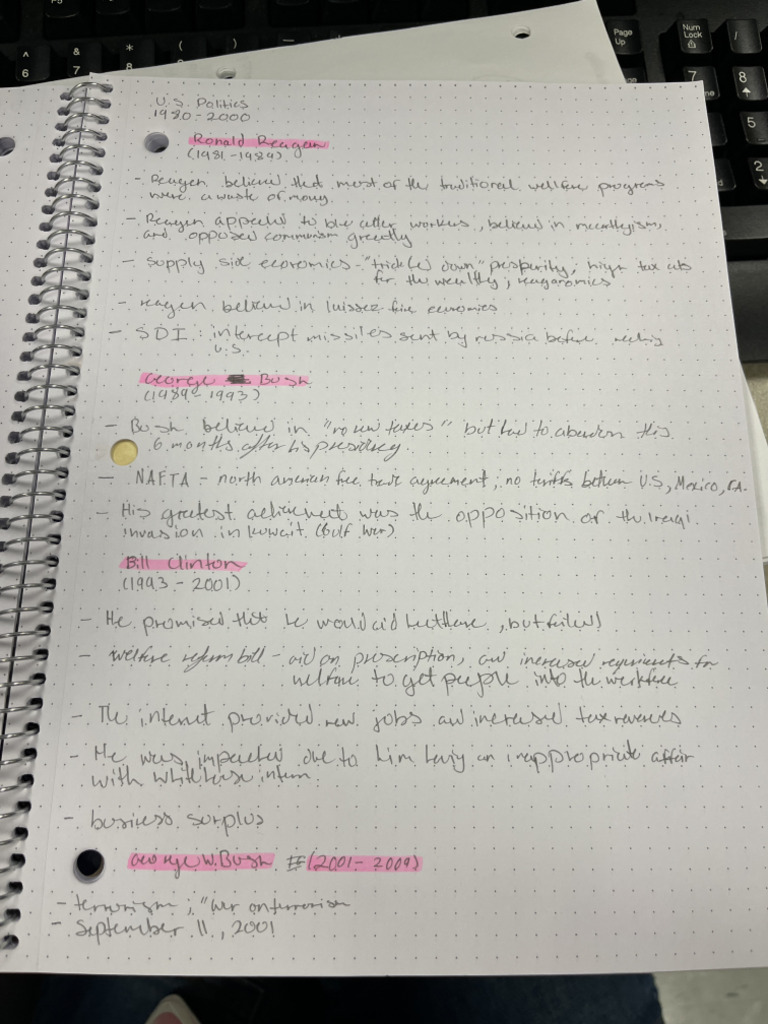 U.S. Politics
1980-2000
Ronald Reagan
(1981-1989)
- Reagen believed that most of the traditional welfare programs
were a waste of money.
- Reagen appealed to blue coller workers, believed in mccarthyism,
and opposed communism greatly
- Supply side economics - "trickle(s) down" prosperity; high tax cuts
for the wealthy; reaganomics
- reagen believed in laissez faire economics
- SDI: intercept missiles sent by russia before reaching
U.S.
George Bush
(1989-1993)
- Bush believed in "no new taxes" but had to abandon this
6 months after his presidency.
- NAFTA - north american free trade agreement; no tariffs between U.S, Mexico, CA.
- His greatest achievement was the opposition of the Iraqi
invasion in Kuwait (Gulf War)
Bill Clinton
(1993-2001)
- He promised that he would aid healthcare, but failed!
- welfare reform bill - aid on prescription, and increased requirements for
welfare to get people into the workforce
- The internet provided new jobs and increased tax revenues
- He was impacted due to him having an inappropriate affair
with white house intern
- business surplus
George W. Bush (2001-2009)
- terrorism; "War on terrorism
- September 11, 2001
^ & * ( ) —
6 7
Page Up
Num Lock
/
7
8
5
2